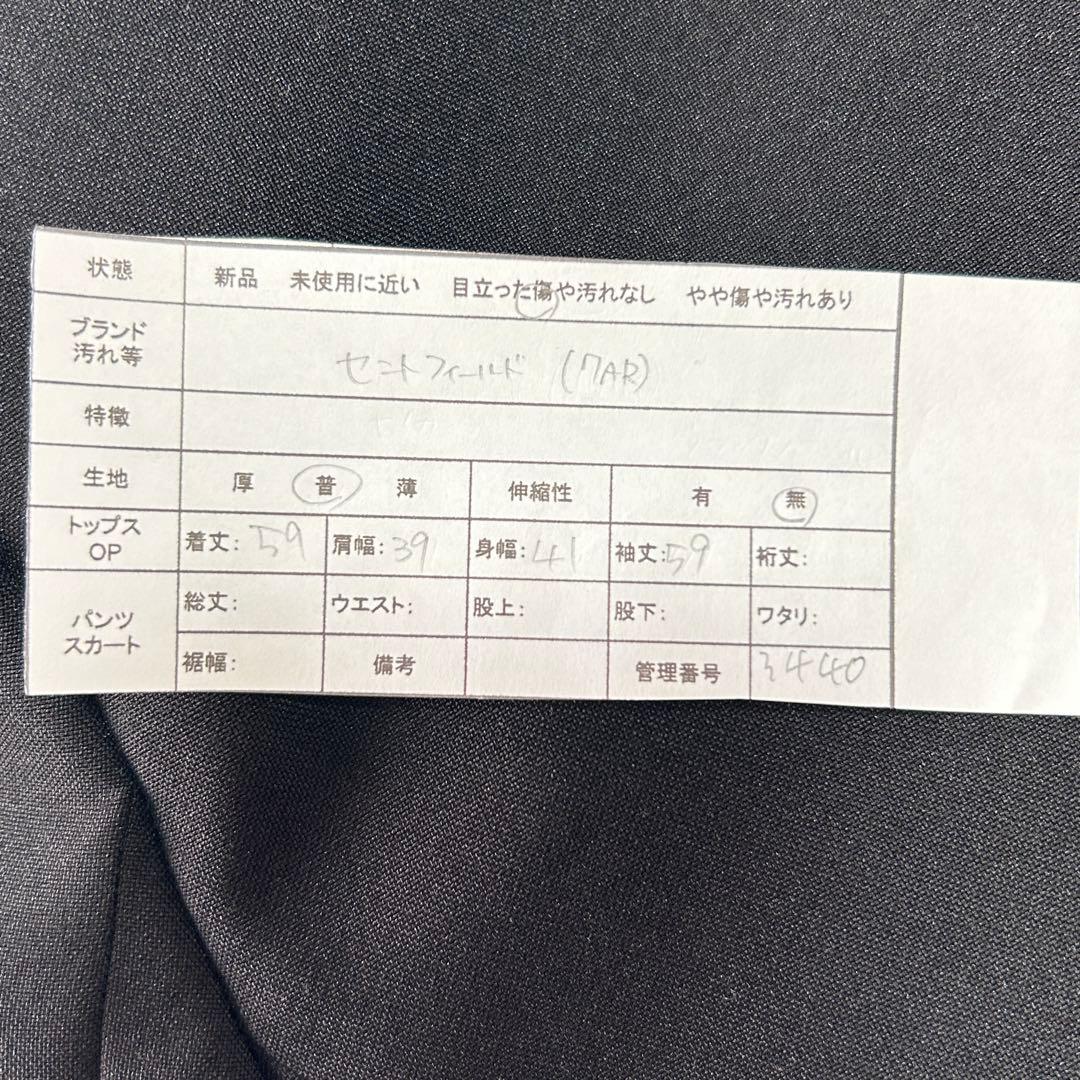 状態 新品 未使用に近い 目立った傷や汚れなし やや傷や汚れあり
ブランド
汚れ等 セントフィールド (7AR)
特徴
生地 厚 普 薄 伸縮性 有 無
トップス
OP 着丈: 59 肩幅: 39 身幅: 41 袖丈: 59 裄丈:
パンツ
スカート 総丈: ウエスト: 股上: 股下: ワタリ:
裾幅: 備考 管理番号 3440